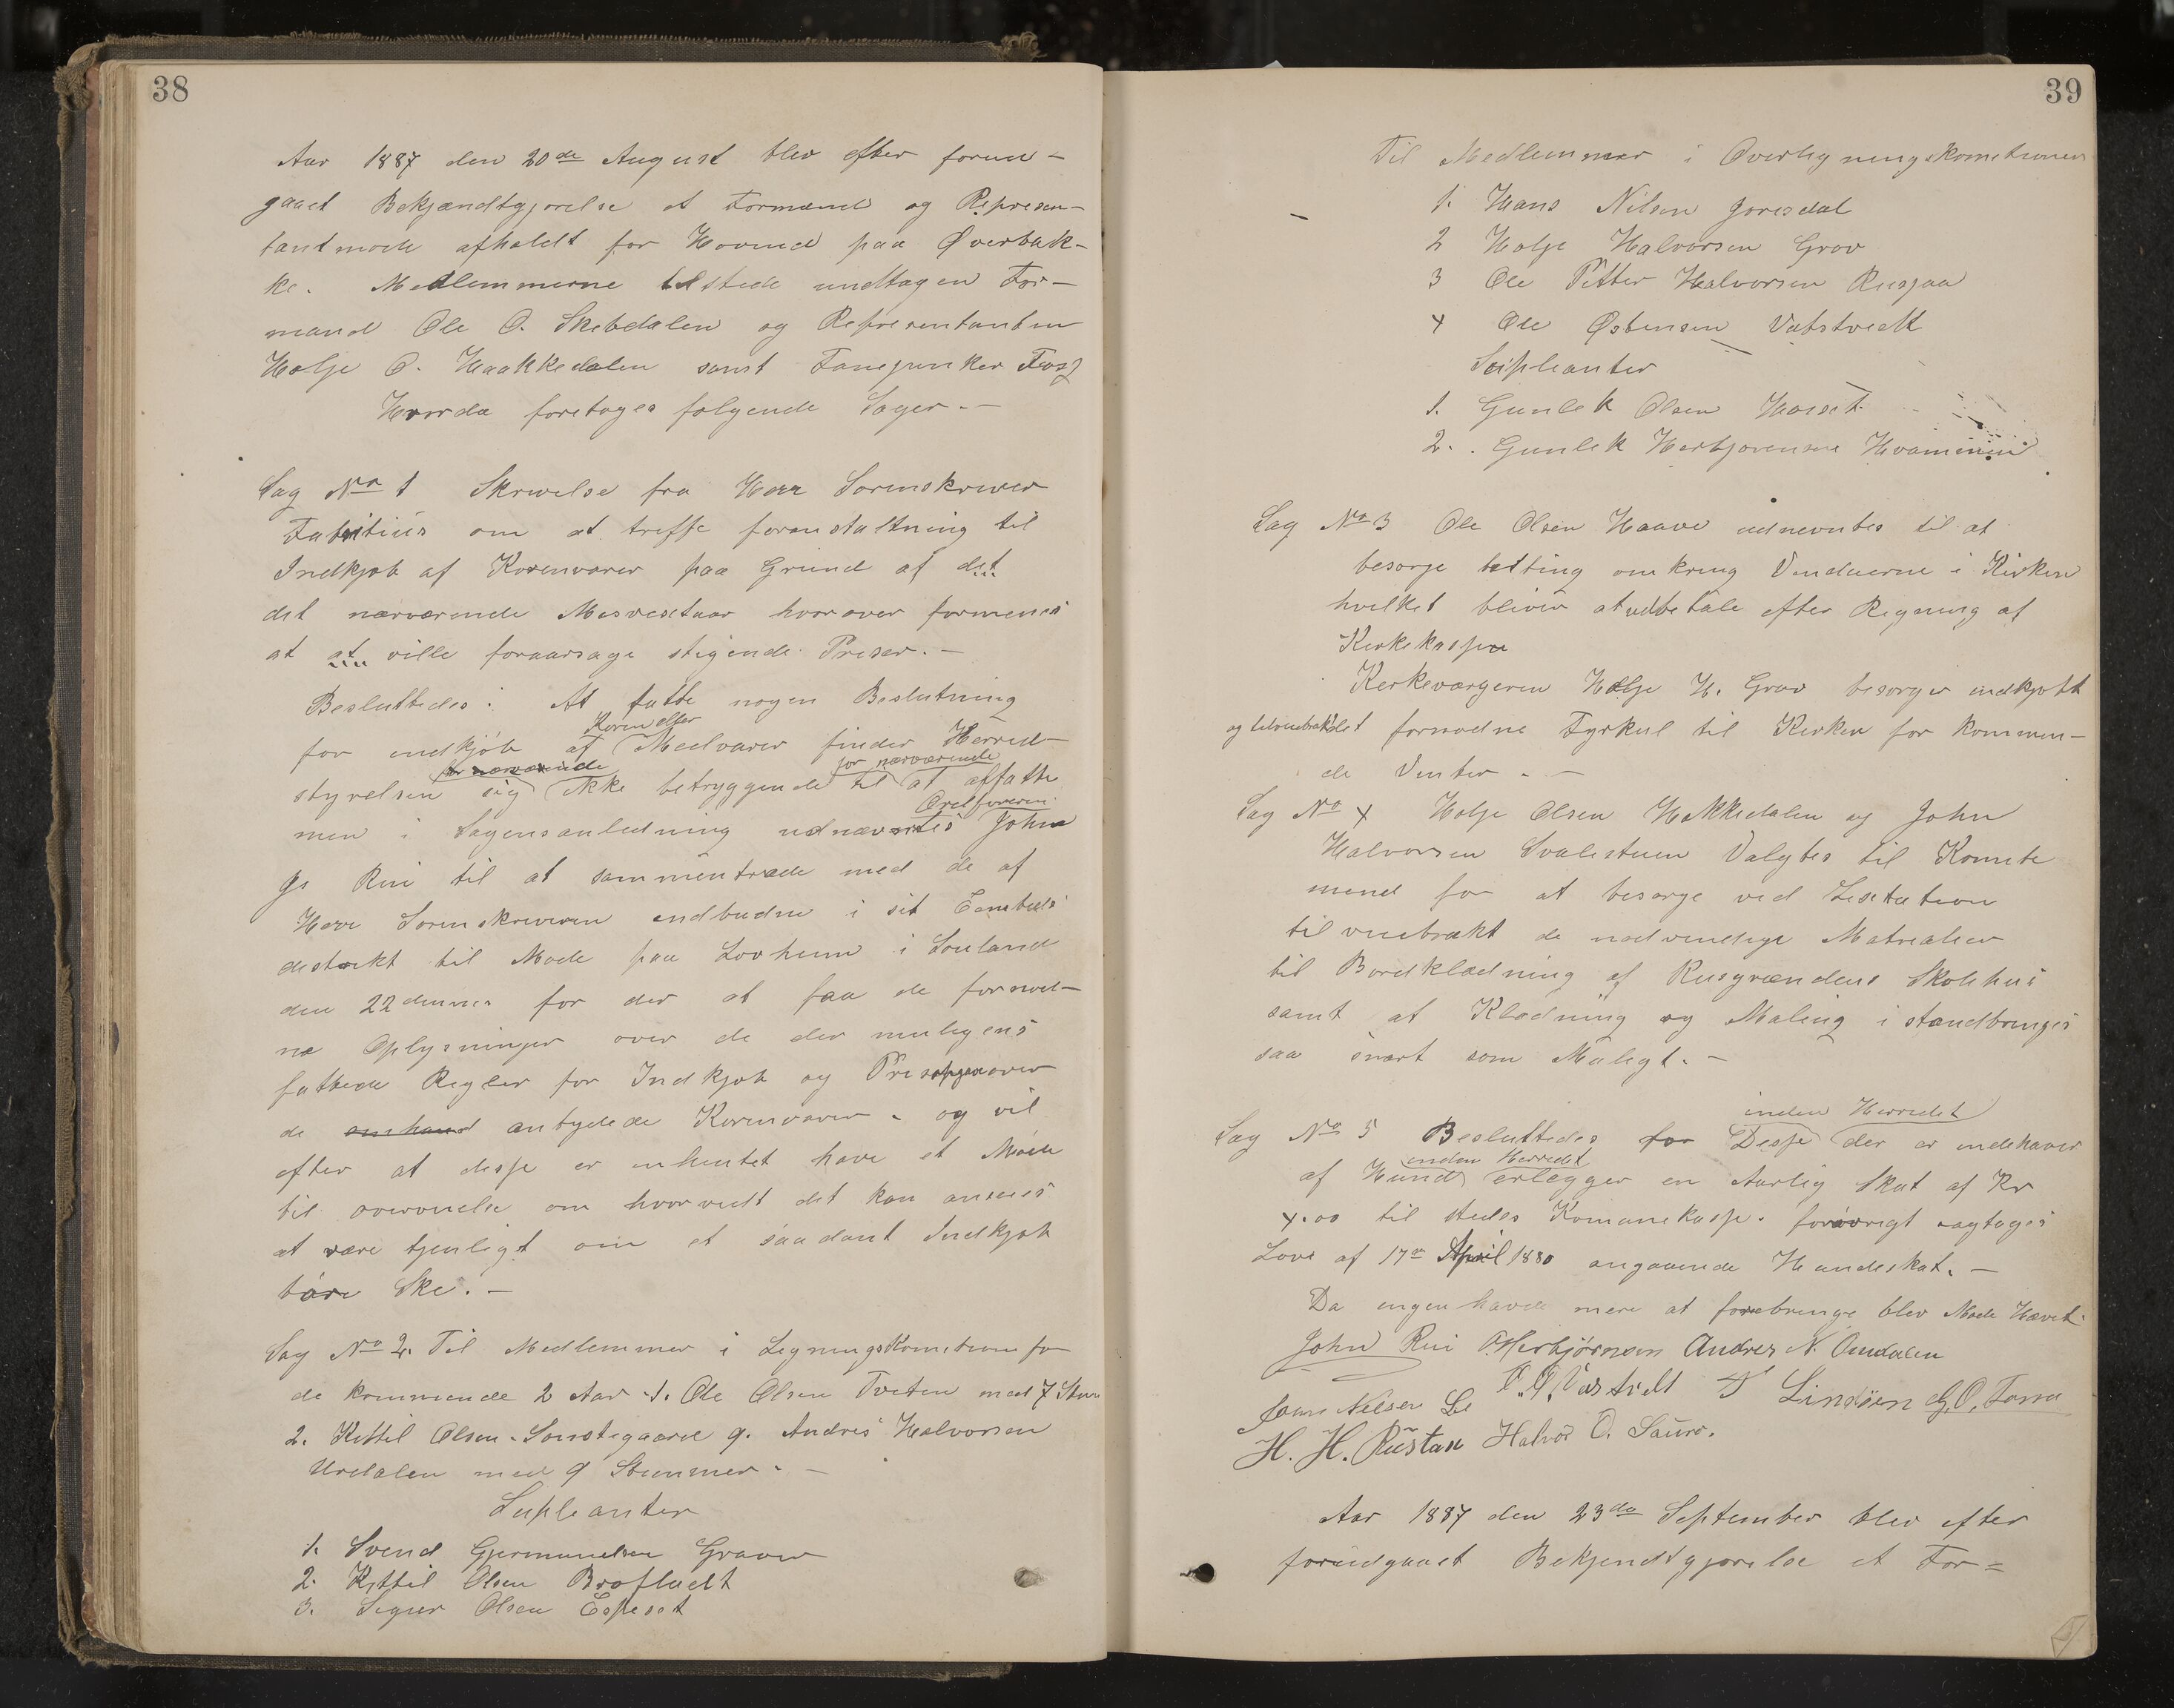 38
Aar 1887 den 20de August blev efter forun-
gaaet Bekjændtgjørelse et Formænd og Represen-
tantmøde afholdt for Hovind paa Øverbak-
ke. Medlemmerne tilstede undtagen For-
mand Ole O. Skebdalen og Representanten
Holje O. Haakkedalen samt Fanejunker Foss
Hvorda foretoges følgende Sager. -
Sag No 1 Skrivelse fra Herr Sorenskriver
Fabritius om at treffe foranstaltning til
Indkjøb af Kornvarer paa Grund af det
det nærværende Misvextaar hvorover formenes
at at ville foraarsage stigende Priser. -
Besluttedes: At fatte nogen Beslutning
Koren eller
for indkjöb af Meelvarer finder Herred-
for nærværende for nærværende
styrelsen sig ikke betryggende til at affatte
Ordføreren
men i Sagens anledning udnævntes John
Gs Rui til at sammentræde med de af
Herr Sorenskriveren indbudne i sit Embeds
distrikt til Møde paa Lovheim i Souland
den 22 dennes for der at faa de fornød-
ne Oplysninger over de der muligens
fattede Regler for Indkjøb og Prisopgaver
de omhand antydede Kornvarer - og vil
efter at disse er inhentet have et Møde
til overveielse om hvorvidt det kan ansees
at være tjenligt om et saadant Indkjøb
böre Ske. -
Sag No 2. Til Medlemmer i Ligningskomitionen for
de kommende 2 Aar - 1. Ole Olsen Tveten med 7 Stem
2. Kittil Olsen Sønstegaard 9. Andres Halvorsen
Urdalen med 9 Stemmer. -
Supleanter
1. Svend Gjermundsen Graver
2. Kittil Olsen Brofladt
3. Sigur Olsen Espeset
39
Til Medlemmer i Overligningskomitionen
1. Hans Nilsen Goresdal
2 Holje Halvorsen Grov
3 Ole Petter Halvorsen Rusjaa
4 Ole Østensen Vatstvedt
Supleanter
1. Gunlek Olsen Haaset
2. Gunlek Herbjørensen Hvammen
Sag No 3 Ole Olsen Haave udnevntes til at
besorge tetting omkring Vinduerne i Kirken
hvilket bliver at udbetale efter Regning af
Kirkekassen
Kirkeværgeren Holje H. Grov besørger indkjøbt
og tilveiebrakt det fornødne Fyrkul til Kirken for kommen-
de Vinter. -
Sag No 4 Holje Olsen Hakkedalen og John
Halvorsen Svalestuen Valgtes til Komite
mend for at besørge ved Lisitation
tilveiebrakt de nødvendige Matrealier
til Bordklædning af Rusgrændens Skolehus
samt at Klædning og Maling istandbringes
saa snart som Muligt. -
inden Herredet
Sag No 5 Besluttedes for Disse der er indehaver
inden Herredet
af Hund erlegger en Aarlig Skat af Kr
4.00 til stedes Komunekasse. forøvrigt iagtages
Love af 17de April 1880 angaaende Hundeskat. -
Da ingen havde mere at forebringe blev Møde Hævet.
John Rui O. Herbjörnsen Andres N. Omdalen
Jams Nilsen Lie O. Ø. Vastvedt Lindöen G. O. Forra
H. H. Rustan Halvor O. Sauro.
Aar 1887 den 23de September blev efter
forudgaaet Bekjendtgjørelse et For=